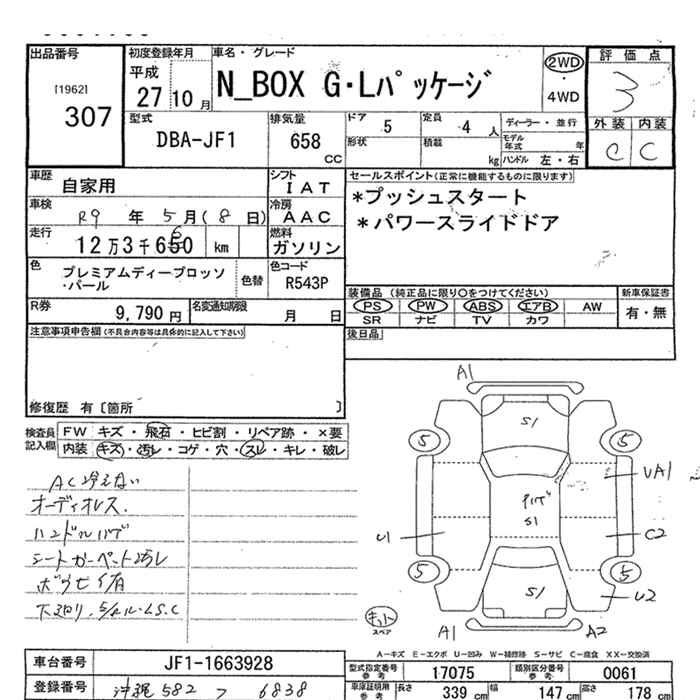 出品番号
[1962]
307
初度登録年月
平成
27 10 月
車名・グレード
N_BOX G・Lパッケージ
2WD
4WD
評価点
3
外装 内装
C C
型式
DBA-JF1
排気量
658
CC
ドア
5
定員
4 人
形状
積載
kg
ディーラー・並行
モデル年式 年
ハンドル 左・右
車歴
自家用
シフト
IAT
車検
R9 年 5 月(8 日)
冷房
AAC
走行
12万3千650 km
6
燃料
ガソリン
色
プレミアムディープロッソ
・パール
色替
色コード
R543P
R券
9,790 円
名変通知期限
月 日
セールスポイント(正常に機能するものに限ります)
*プッシュスタート
*パワースライドドア
装備品 (純正品に限り○をつけてください)
新車保証書
PS PW ABS エアB AW
SR ナビ TV カワ
有・無
後日品
注意事項申告欄(不具合内容等は具体的に記入して下さい)
修復歴 有〔箇所 〕
検査員
記入欄
FW キズ・飛石・ヒビ割・リペア跡・×要
内装 キズ・汚レ・コゲ・穴・スレ・キレ・破レ
AC冷えない
オーディオレス.
シートカーペット汚レ
A1
S1
5
5
UA1
S1
U1
C2
5
5
S1
U2
A1
A2
スペア
A-キズ E-エクボ U-凹み W-補修跡 S-サビ C-腐食 XX-交換済
車台番号
JF1-1663928
登録番号
沖縄 582 7 6838
型式指定番号
参考
17075
類別区分番号
参考
0061
車庫証明用
参考
長さ 339 cm 幅 147 cm 高さ 178 cm